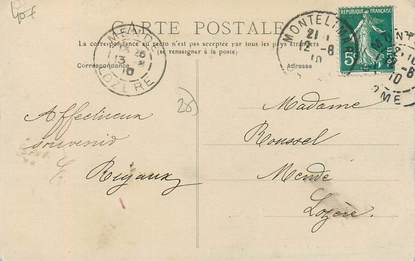 CARTE POSTALE
La correspondance au recto n'est pas acceptée par tous les pays étrangers
(se renseigner à la poste)
Correspondance
Adresse
MENDE
LOZERE
13
10
MONTELI
12-8
10
RÉPUBLIQUE FRANÇAISE
5c
POSTES
20
Affectueux
souvenir
Rigaux
Madame
Roussel
Mende
Lozère